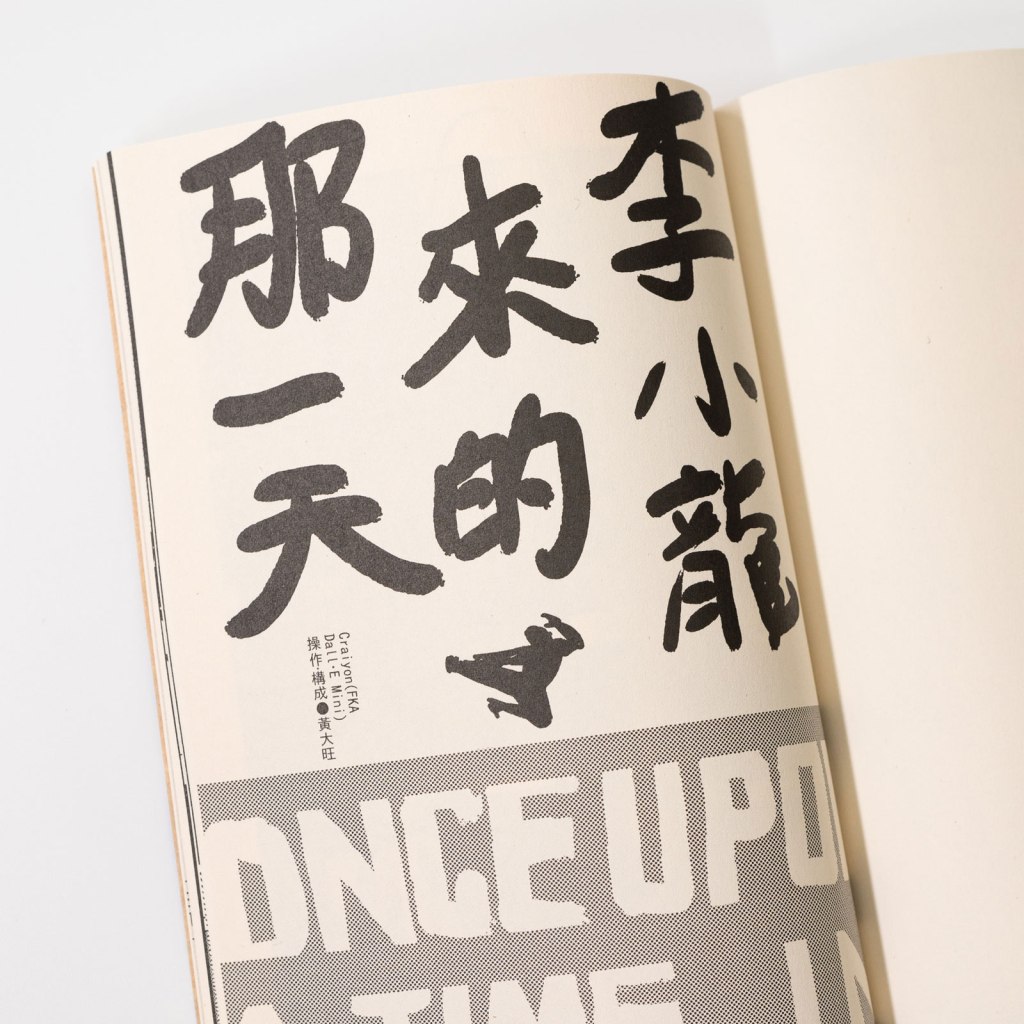 李小龍
來的
那一天
Craiyon(FKA
Dall·E Mini)
操作·構成●黃大旺
ONCE UPON
A TIME